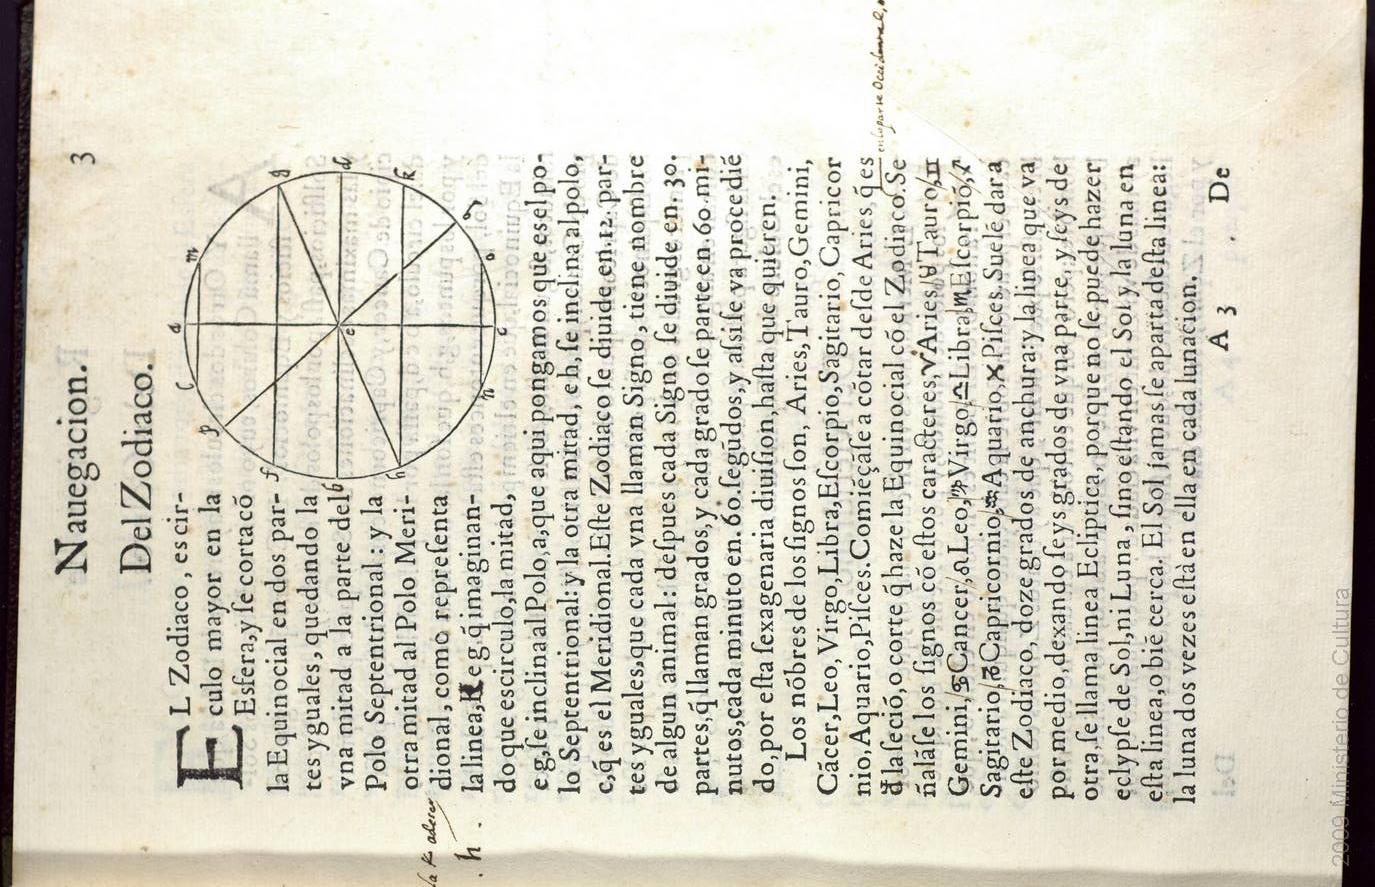 Nauegacion. 3
Del Zodiaco.
EL Zodiaco, es cir-
culo mayor en la
Esfera, y ſe corta cõ
la Equinocial en dos par-
tes yguales, quedando la
vna mitad a la parte del
Polo Septentrional: y la
otra mitad al Polo Meri-
dional, como repreſenta
la linea, e g, q̃ imaginan-
do que es circulo, la mitad,
a
l
m
p
g
f
b
d
e
h
k
n
o
c
e g, ſe inclina al Polo, a, que aqui pongamos que es el po-
lo Septentrional: y la otra mitad, e h, ſe inclina al polo,
c, q̃ es el Meridional. Eſte Zodiaco ſe diuide en. 12. par-
tes yguales, que cada vna llaman Signo, tiene nombre
de algun animal: deſpues cada Signo ſe diuide en. 30.
partes, q̃ llaman grados, y cada grado ſe parte en. 60. mi-
nutos, cada minuto en. 60. ſegũdos, y aſsi ſe va procediẽ
do, por eſta ſexagenaria diuiſion, haſta que quieren.
Los nõbres de los ſignos ſon, Aries, Tauro, Gemini,
Cãcer, Leo, Virgo, Libra, Eſcorpio, Sagitario, Capricor
nio, Aquario, Piſces. Comiẽçaſe a cõtar deſde Aries, q̃ es
en la parte Occidental,
la ſeciõ, o corte q̃ haze la Equinocial cõ el Zodiaco. Se
ñalãſe los ſignos cõ eſtos caracteres, ♈ Aries, ♉ Tauro, ♊
Gemini, ♋ Cancer, ♌ Leo, ♍ Virgo, ♎ Libra, ♏ Eſcorpiõ, ♐
Sagitario, ♑ Capricornio, ♒ Aquario, ♓ Piſces. Suelẽ dar a
eſte Zodiaco, doze grados de anchura: y la linea que va
por medio, dexando ſeys grados de vna parte, y ſeys de
otra, ſe llama linea Ecliptica, porque no ſe puede hazer
eclypſe de Sol, ni Luna, ſino eſtando el Sol y la luna en
eſta linea, o biẽ cerca. El Sol jamas ſe aparta deſta linea:
la luna dos vezes eſtà en ella en cada lunacion.
A 3 De
la K
h.
2009 Ministerio de Cultura